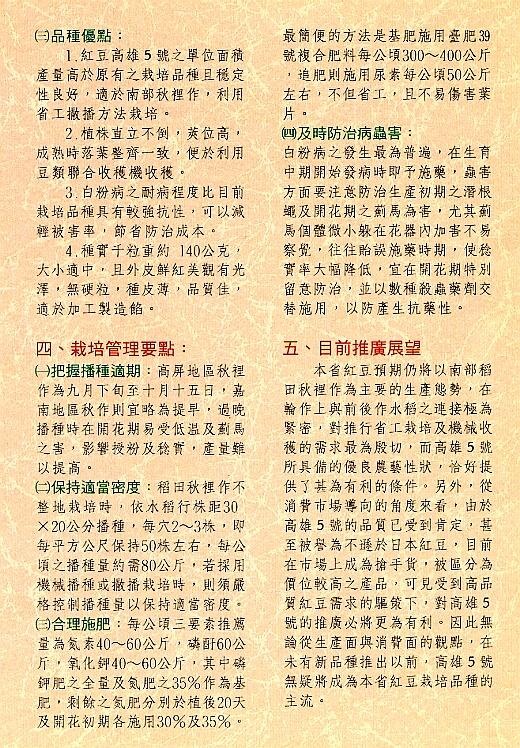 ㈢品種優點：
1.紅豆高雄5號之單位面積
產量高於原有之栽培品種且穩定
性良好，適於南部秋裡作，利用
省工撒播方法栽培。
2.植株直立不倒，莢位高，
成熟時落葉整齊一致，便於利用
豆類聯合收穫機收穫。
3.白粉病之耐病程度比目前
栽培品種具有較強抗性，可以減
輕被害率，節省防治成本。
4.種實千粒重約 140公克，
大小適中，且外皮鮮紅美觀有光
澤，無硬粒，種皮薄，品質佳，
適於加工製造餡。
四、栽培管理要點：
㈠把握播種適期：高屏地區秋裡
作為九月下旬至十月十五日，嘉
南地區秋作則宜略為提早，過晚
播種時在開花期易受低溫及薊馬
之害，影響授粉及稔實，產量難
以提高。
㈡保持適當密度：稻田秋裡作不
整地栽培時，依水稻行株距30
×20公分播種，每穴2～3株，即
每平方公尺保持50株左右，每公
頃之播種量約需80公斤，若採用
機械播種或撒播栽培時，則須嚴
格控制播種量以保持適當密度。
㈢合理施肥：每公頃三要素推薦
量為氮素40～60公斤，磷酐60公
斤，氧化鉀40～60公斤，其中磷
鉀肥之全量及氮肥之35%作為基
肥，剩餘之氮肥分別於植後20天
及開花初期各施用30%及35%。
最簡便的方法是基肥施用臺肥39
號複合肥料每公頃300～400公斤
，追肥則施用尿素每公頃50公斤
左右，不但省工，且不易傷害葉
片。
㈣及時防治病蟲害：
白粉病之發生最為普遍，在生育
中期開始發病時即予施藥，蟲害
方面要注意防治生產初期之潛根
蠅及開花期之薊馬為害，尤其薊
馬個體微小躲在花器內加害不易
察覺，往往貽誤施藥時期，使稔
實率大幅降低，宜在開花期特別
留意防治，並以數種殺蟲藥劑交
替施用，以防產生抗藥性。
五、目前推廣展望
本省紅豆預期仍將以南部稻
田秋裡作為主要的生產態勢，在
輪作上與前後作水稻之連接極為
緊密，對推行省工栽培及機械收
穫的需求最為殷切，而高雄5號
所具備的優良農藝性狀，恰好提
供了甚為有利的條件。另外，從
消費市場導向的角度來看，由於
高雄5號的品質已受到肯定，甚
至被譽為不遜於日本紅豆，目前
在市場上成為搶手貨，被區分為
價位較高之產品，可見受到高品
質紅豆需求的驅策下，對高雄5
號的推廣必將更為有利。因此無
論從生產面與消費面的觀點，在
未有新品種推出以前，高雄5號
無疑將成為本省紅豆栽培品種的
主流。